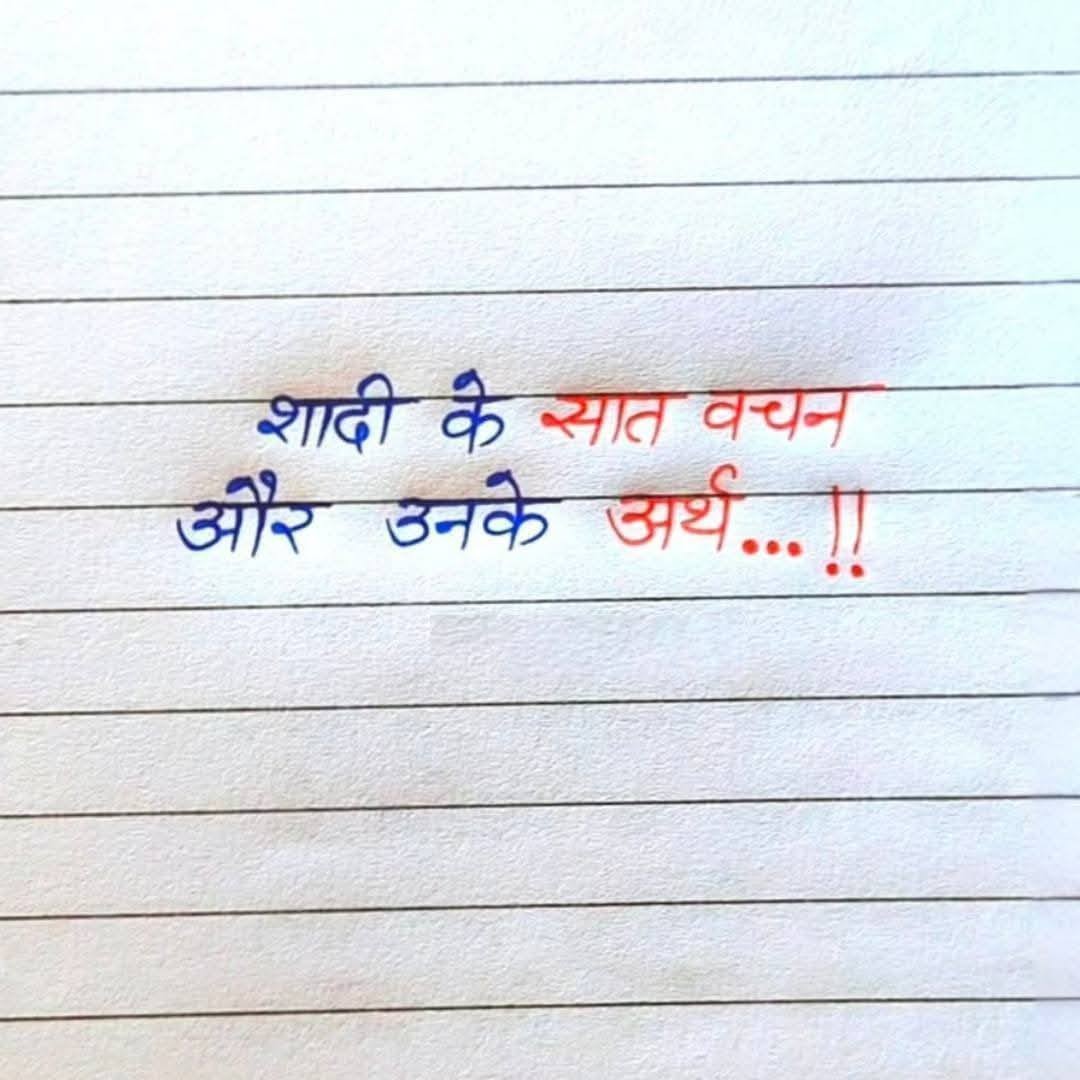 शादी के सात वचन
और उनके अर्थ...!!